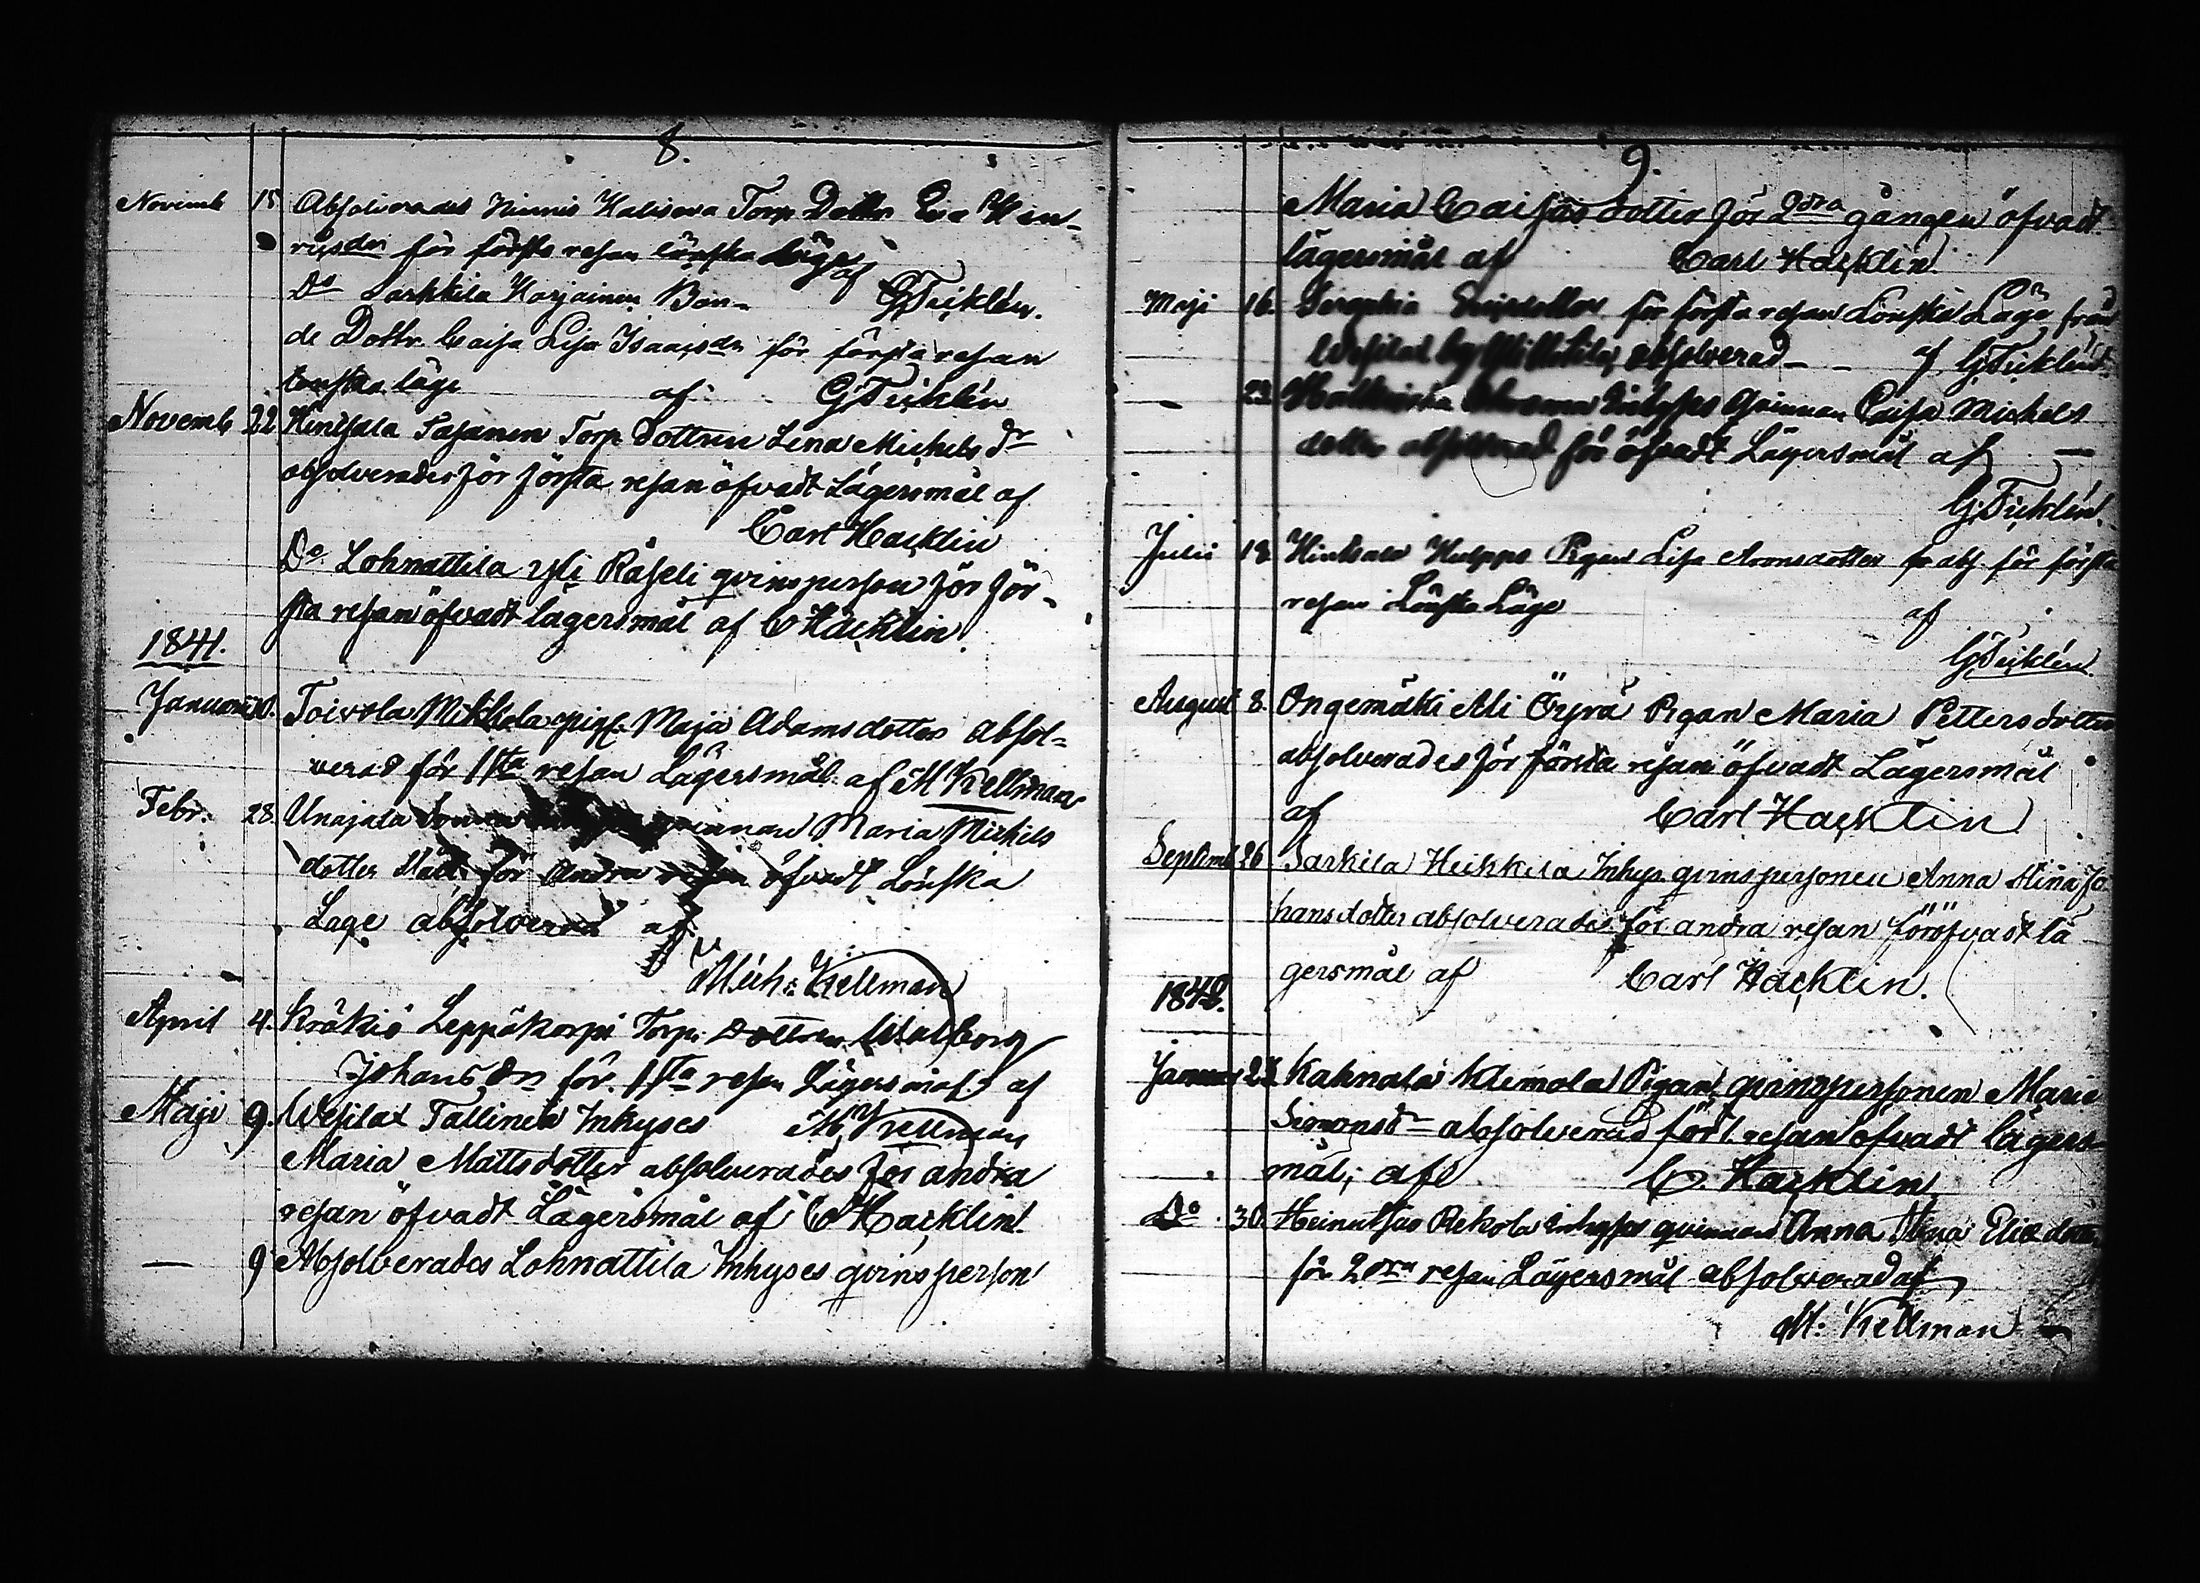 8.
Novemb 15 Absolverades Niinnis Kalisova Torp. Dottr. Eva Hen-
ricsdr för första resan lönska läge
af
Do Sarkkila Karjainen Bon- GTicklén.
de Dottr. Caisa Lisa Isaacsdr för första resan
lönska läge af GTicklén
Novemb 22 Hinsala Sasanen Torp. dottren Lena Michels dr
absolverades för första resan öfvadt Lägersmål af
Carl Hacklin
Do Lohnattila Yli Räseli qvinsperson för för-
sta resan öfvadt lägersmål af C Hacklin.
1841.
Januari 10. Toivola Mikkola pig. Maja Adamsdotter absol-
verad för 1sta resan Lägersmål af M Kellman
Febr. 28. Unajala qvinnan Maria Michels
dotter för Andra resan öfvadt Lönska
Läge absolverad af
Mich: Kellman
April 4. Kräkiö Leppäkorpi Torp. Dottren Walborg
Johans dr för 1sta resan Lägersmål af
Maji 9. Wesilax Tallinen Inhyses M Kellman
Maria Mattsdotter absolverades för andra
resan öfvadt Lägersmål af C Hacklin.
— 9 Absolverades Lohnattila Inhyses qvinsperson
9.
Maria Caisas dotter för 2dra gången öfvadt
lägersmål af Carl Hacklin.
Maji 16. för första resan Lönska Läge från
Wesilax by absolverad — af GTicklén.
— 23 Inhyses Qvinnan Caisa Michels
dotter absolverad för öfvadt Lägersmål af —
GTicklén.
Julii 18 Hinsala Hulppo Pigan Lisa Aronsdotter abs. för första
resan Lönska Läge
af
GTicklén.
August 8. Ongemäki Ali Öyrä Pigan Maria Pettersdotter
absolverades för första resan öfvadt Lägersmål
af Carl Hacklin
Septemb 26 Sarkila Heikkila Inhys. qvinspersonen Anna Stina Jo
hansdotter absolverades för andra resan för öfvadt lä
gersmål af Carl Hacklin.
1842.
Januar 23. Kahnala Klemola Pigan, qvinspersonen Maria
Simonsdr absolverad för 1. resan öfvadt lägers-
mål, af C. Hacklin
Do 30. Heinutsuo Rekola Inhyses qvinnan Anna Stina Elie dotter
för 2dra resan Lägersmål absolverad af
M: Kellman —